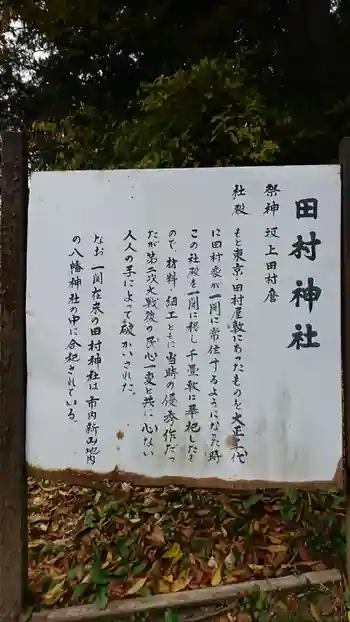 田村神社
祭神 坂上田村麿
社殿 もと東京・田村屋敷にあったものを大正二代
に田村家が一関に常住するようになった時
この社殿を一関に移し千畳敷に奉祀したも
ので、材料・細工ともに当時の優秀作だっ
たが第二次大戦後の民心一変と共に心ない
人人の手によって破かいされた。
なお一関在来の田村神社は市内新山地内
の八幡神社の中に合祀されている。